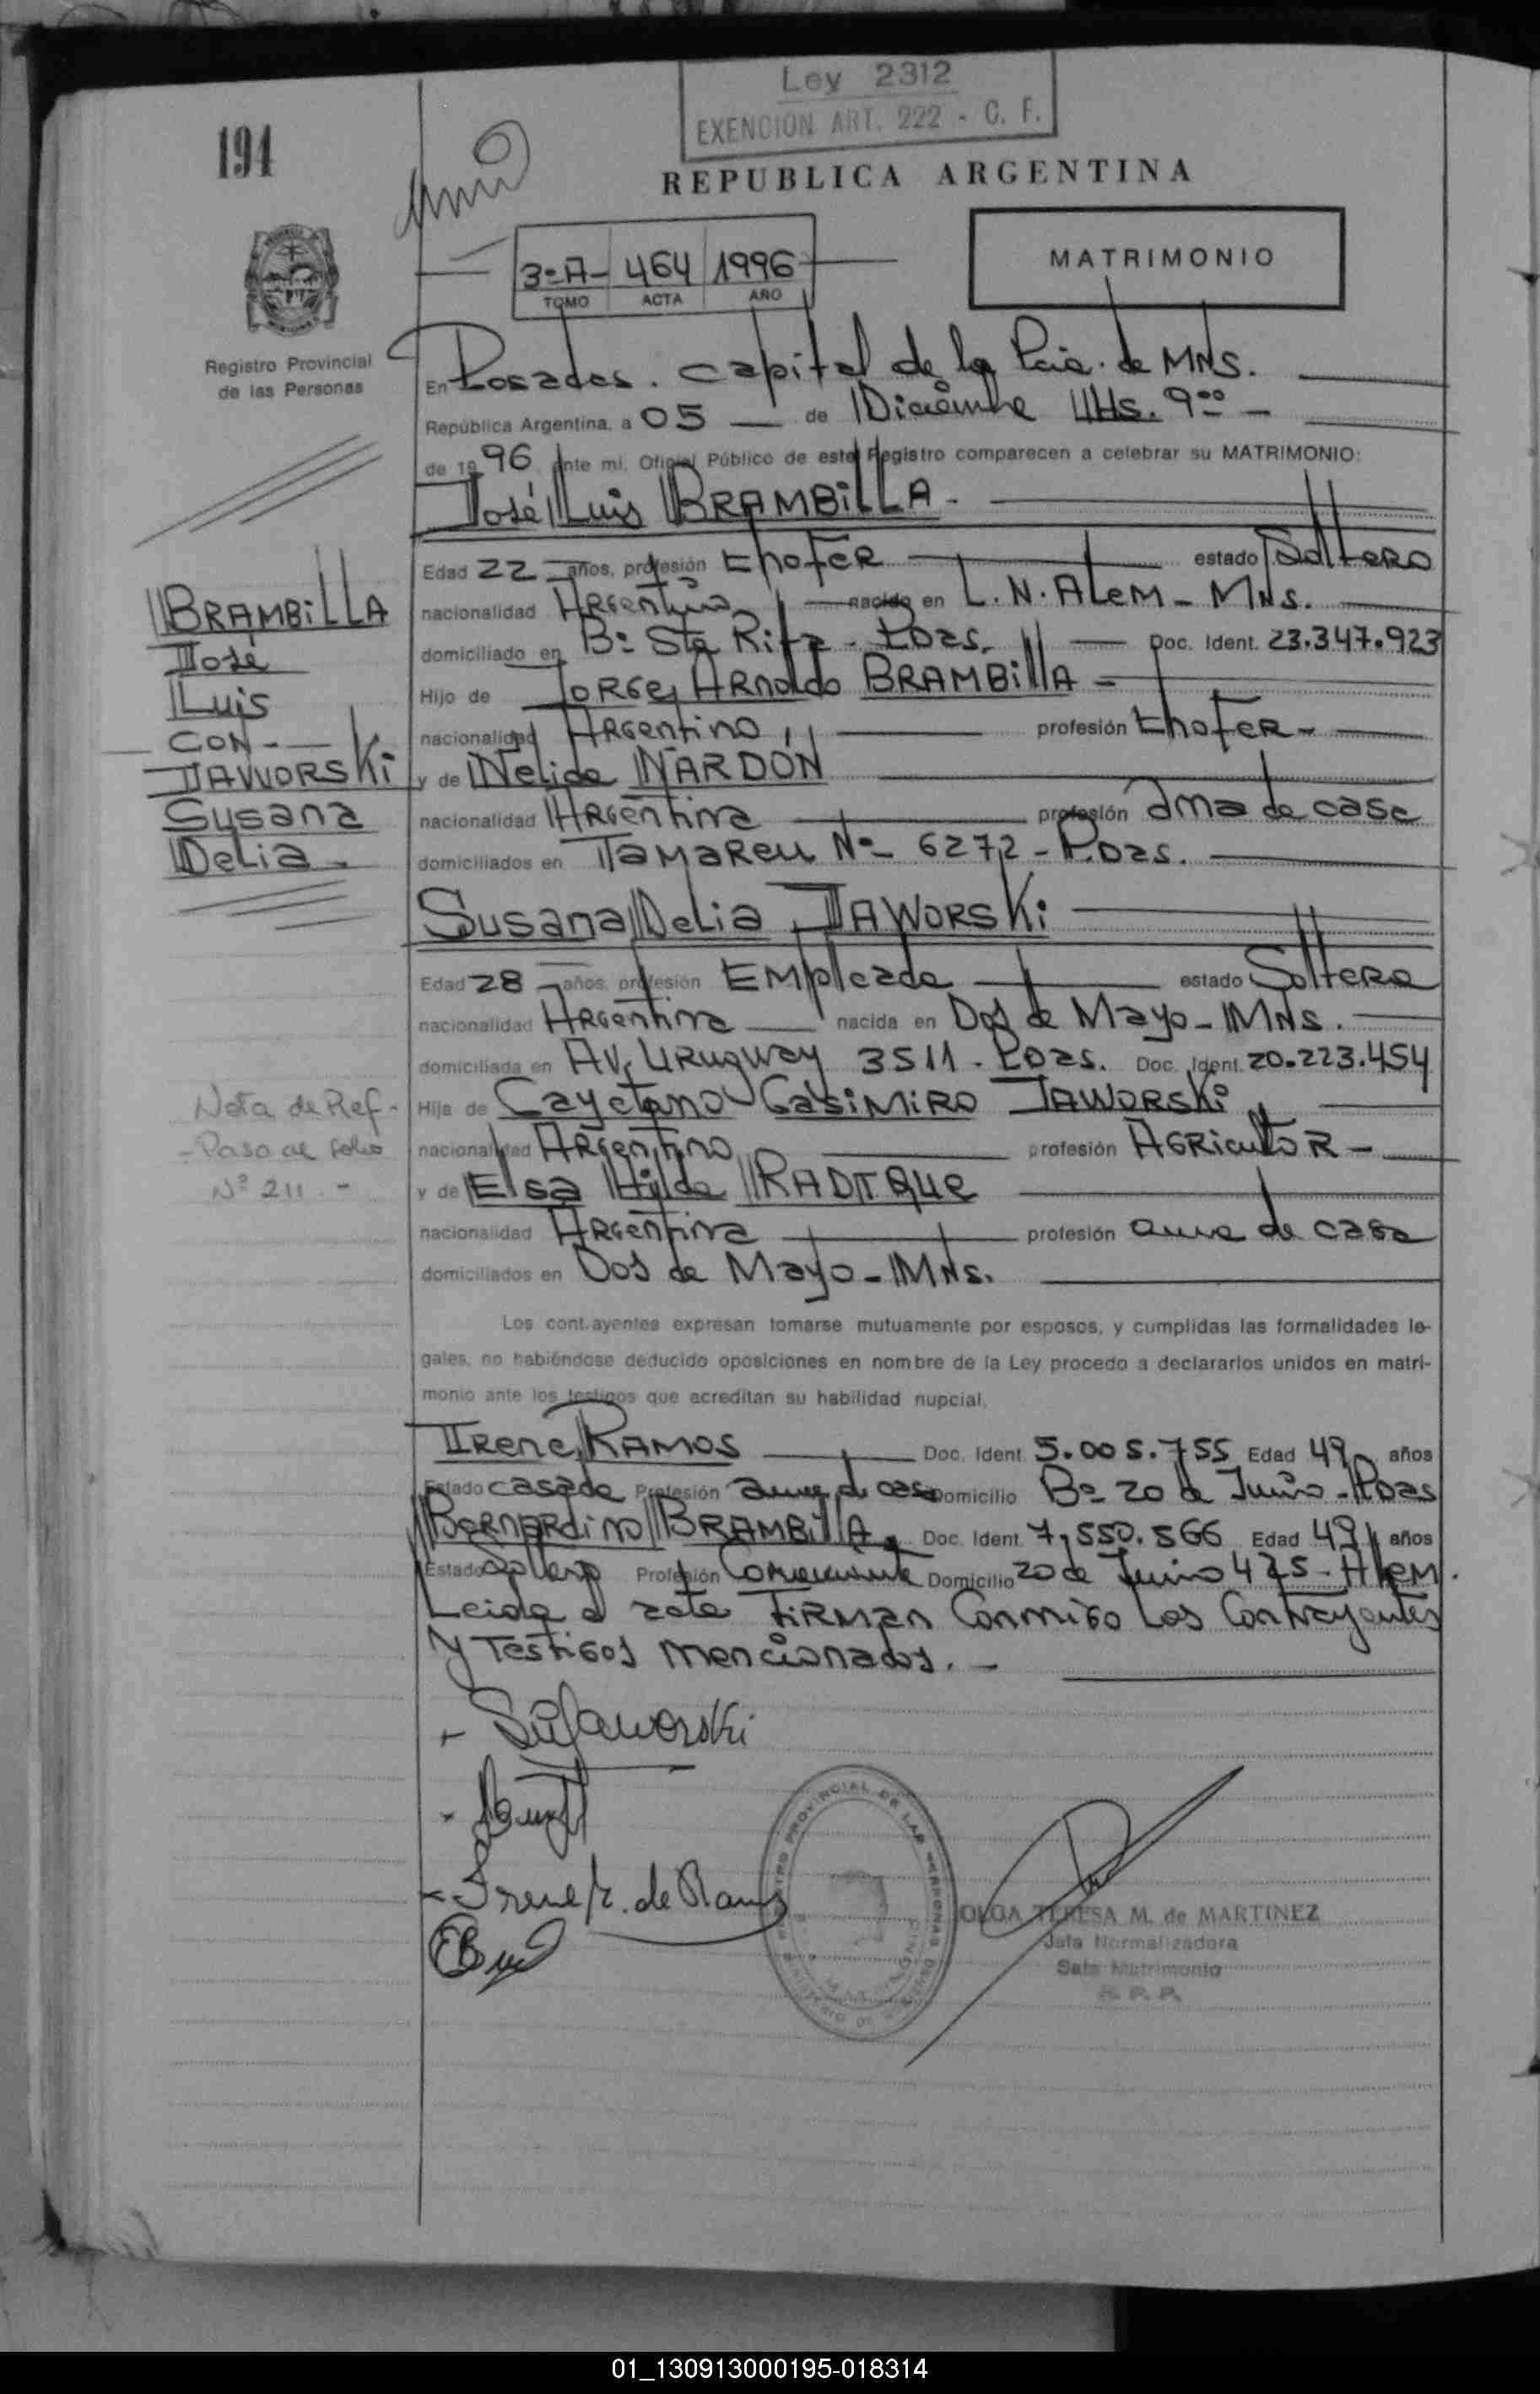 Ley 2312
EXENCION ART. 222 - C. F.
194
REPUBLICA ARGENTINA
3º A - 464 1996
TOMO ACTA AÑO
MATRIMONIO
Registro Provincial
de las Personas
En Posadas. Capital de la Pcia. de MNS.
República Argentina, a 05 de Diciembre Hs. 9ºº -
de 1996 ante mi, Oficial Público de este Registro comparecen a celebrar su MATRIMONIO:
José Luis BRAMBILLA -
Edad 22 años, profesión Chofer estado Soltero
nacionalidad Argentino nacido en L. N. Alem - MNS.
domiciliado en Bº Sta Rita - Pdas. Doc. Ident. 23.347.923
Hijo de Jorge Arnoldo BRAMBILLA -
nacionalidad Argentino profesión Chofer -
y de Nelida NARDON
nacionalidad Argentina profesión ama de casa
domiciliados en Tamareu Nº 6272 - Pdas.
BRAMBILLA
José
Luis
CON -
JAWORSKi
Susana
Delia -
Susana Delia JAWORSKi
Edad 28 años, profesión Empleada estado Soltera
nacionalidad Argentina nacida en Dos de Mayo - MNS.
domiciliada en Av. Uruguay 3511 - Pdas. Doc. Ident. 20.223.454
Hija de Cayetano Casimiro JAWORSKi
nacionalidad Argentino profesión Agricultor -
y de Elsa Hilda RADTQUE
nacionalidad Argentina profesión ama de casa
domiciliados en Dos de Mayo - MNS.
Nota de Ref -
- Paso al folio
Nº 211 -
Los contrayentes expresan tomarse mutuamente por esposos, y cumplidas las formalidades le-
gales, no habiéndose deducido oposiciones en nombre de la Ley procedo a declararlos unidos en matri-
monio ante los testigos que acreditan su habilidad nupcial.
Irene RAMOS Doc. Ident. 5.005.755 Edad 49 años
Estado casada Profesión ama de casa Domicilio Bº 20 de Junio - Pdas
Bernardino BRAMBILLA Doc. Ident. 7.550.566 Edad 49 años
Estado Soltero Profesión Comerciante Domicilio 20 de Junio 475 - Alem.
Leida el acta Firman Conmigo Los Contrayentes
y Testigos mencionados. -
Jaworski
Irene R. de Ramos
REGISTRO PROVINCIAL DE LAS PERSONAS
OLGA TERESA M. de MARTINEZ
Jefa Normalizadora
Sala Matrimonio
R. P. P.
01_130913000195-018314